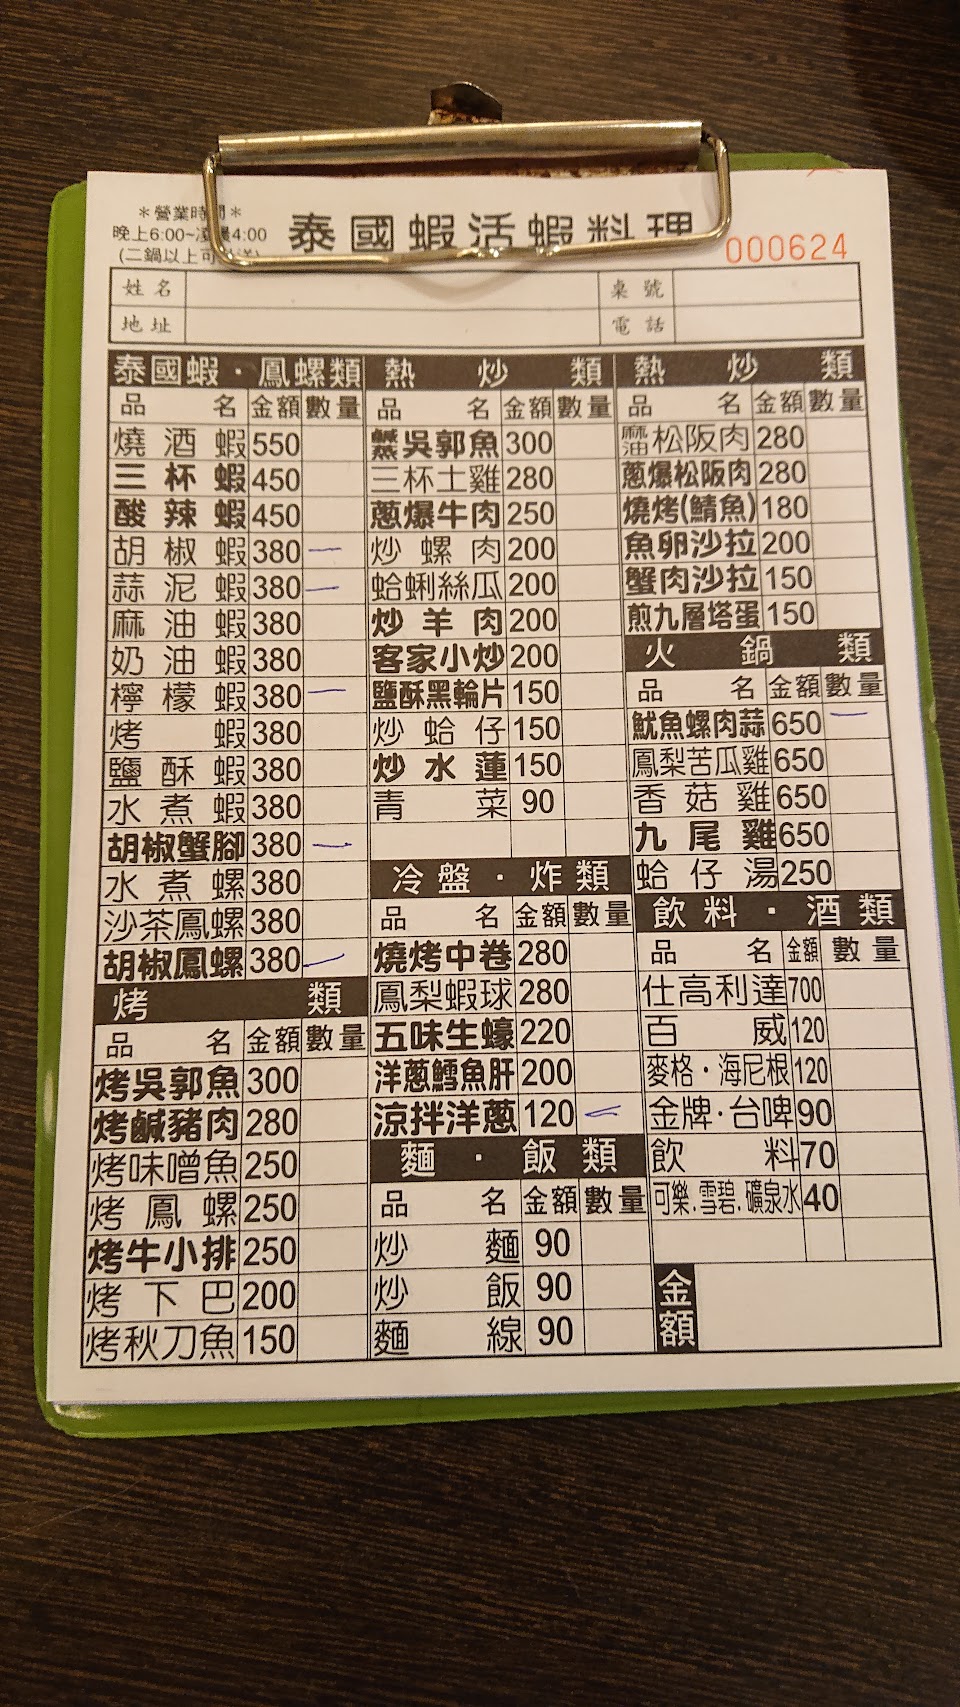 ＊營業時間＊
晚上6:00~凌晨4:00
(二鍋以上可外送)
泰國蝦活蝦料理
000624
姓名 桌號
地址 電話
泰國蝦・鳳螺類
品名 金額 數量
燒酒蝦 550
三杯蝦 450
酸辣蝦 450
胡椒蝦 380 一
蒜泥蝦 380 一
麻油蝦 380
奶油蝦 380
檸檬蝦 380 一
烤蝦 380
鹽酥蝦 380
水煮蝦 380
胡椒蟹腳 380 一
水煮螺 380
沙茶鳳螺 380
胡椒鳳螺 380 一
烤類
品名 金額 數量
烤吳郭魚 300
烤鹹豬肉 280
烤味噌魚 250
烤鳳螺 250
烤牛小排 250
烤下巴 200
烤秋刀魚 150
熱炒類
品名 金額 數量
鹹蒸吳郭魚 300
三杯土雞 280
蔥爆牛肉 250
炒螺肉 200
蛤蜊絲瓜 200
炒羊肉 200
客家小炒 200
鹽酥黑輪片 150
炒蛤仔 150
炒水蓮 150
青菜 90
冷盤・炸類
品名 金額 數量
燒烤中卷 280
鳳梨蝦球 280
五味生蠔 220
洋蔥鱈魚肝 200
涼拌洋蔥 120 一
麵・飯類
品名 金額 數量
炒麵 90
炒飯 90
麵線 90
熱炒類
品名 金額 數量
麻油松阪肉 280
蔥爆松阪肉 280
燒烤(鯖魚) 180
魚卵沙拉 200
蟹肉沙拉 150
煎九層塔蛋 150
火鍋類
品名 金額 數量
魷魚螺肉蒜 650 一
鳳梨苦瓜雞 650
香菇雞 650
九尾雞 650
蛤仔湯 250
飲料・酒類
品名 金額 數量
仕高利達 700
百威 120
麥格・海尼根 120
金牌・台啤 90
飲料 70
可樂.雪碧.礦泉水 40
金額